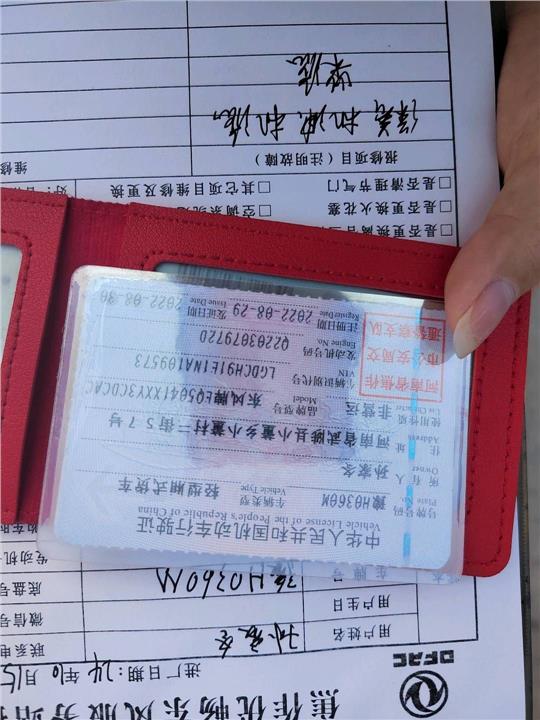 焦作优畅东风服务站
DFAC
进厂日期：24年10月15
用户姓名 孙家冬 联系电
用户生日 微信号
车牌号 豫H0360M 底盘号
发动机
中华人民共和国机动车行驶证
Vehicle License of the People's Republic of China
号牌号码 豫H0360M 车辆类型 轻型厢式货车
Plate No. Vehicle Type
所有人 孙家冬
Owner
住址 河南省武陟县小董乡小董村二街57号
Address
使用性质 非营运 品牌型号 东风牌EQ5041XXY3CDCAC
Use Character Model
河南省焦作
市公安局交
通警察支队
车辆识别代号 LGDCH91E1NA109573
VIN
发动机号码 Q220307972D
Engine No.
注册日期 2022-08-29 发证日期 2022-08-30
Register Date Issue Date
□是否更换火花塞 □空调系统
□是否清理节气门 □其它项目维修及更换
报修项目（注明故障） 维修
机油 机滤
柴滤